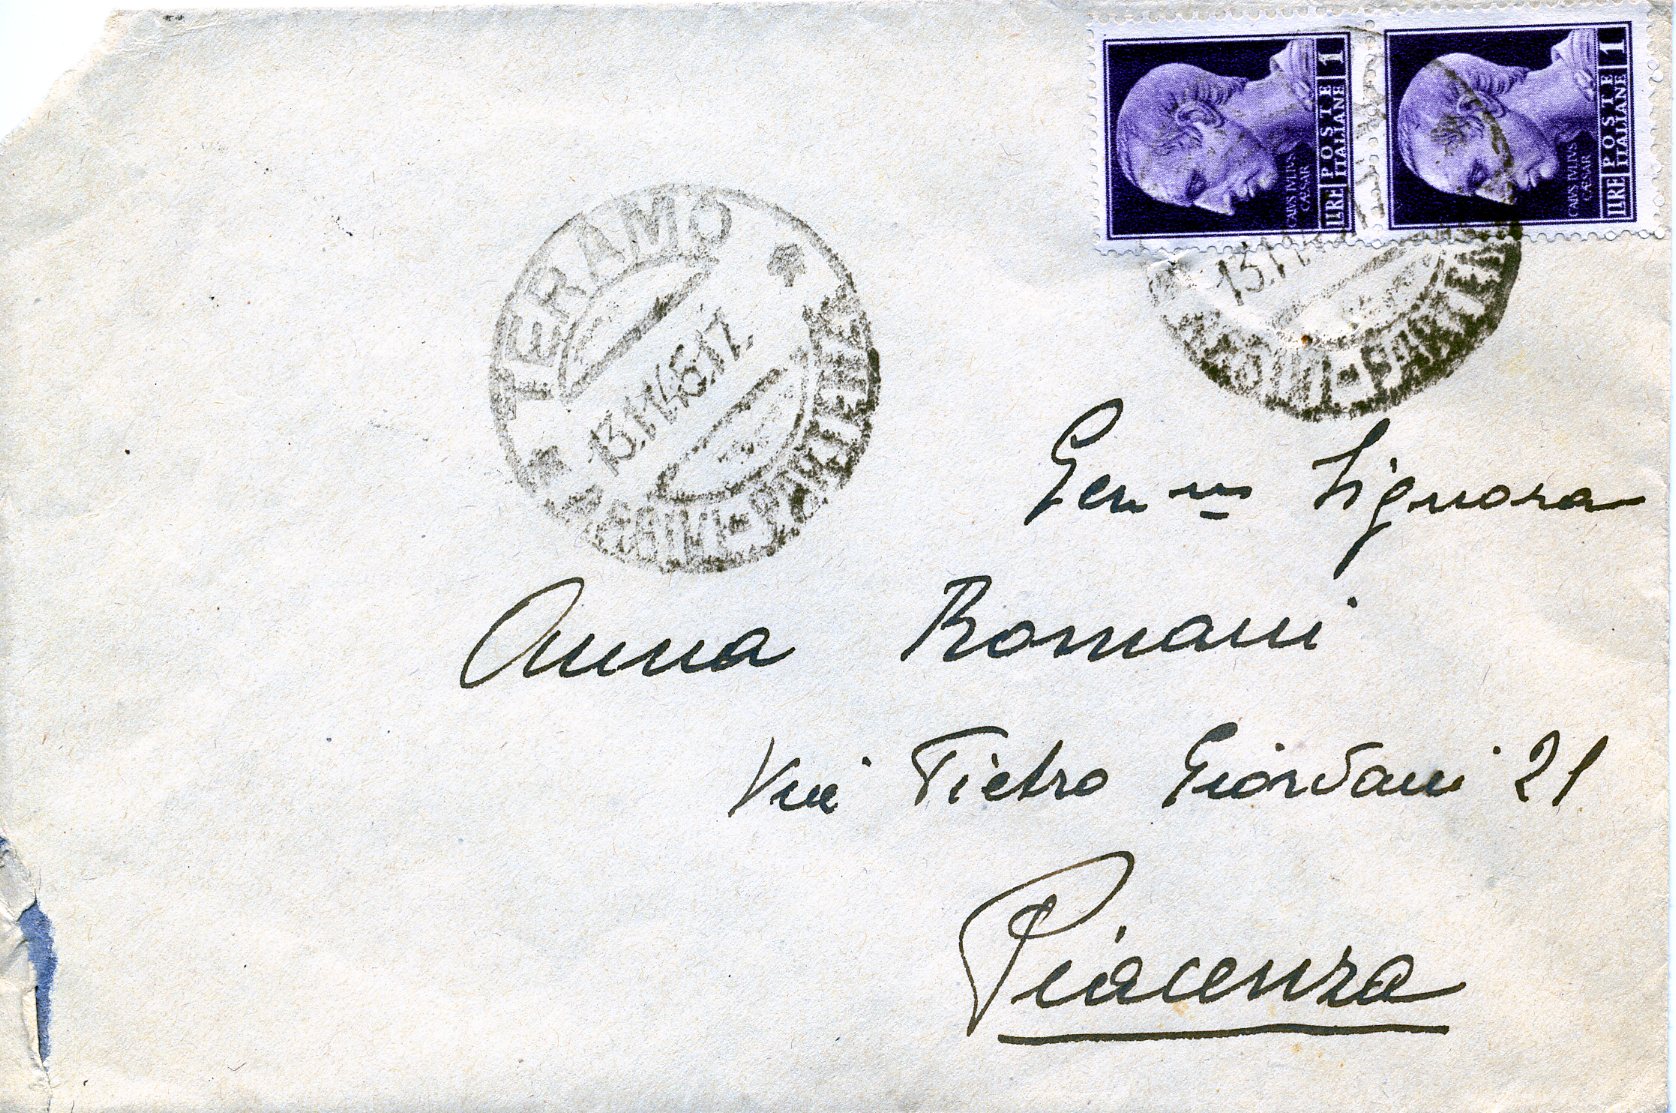 LIRE POSTE ITALIANE 1
CAIVS IVLIVS
CAESAR
LIRE POSTE ITALIANE 1
CAIVS IVLIVS
CAESAR
TERAMO
13.11.45.17.
13.11
Signora
Anna Romani
Via Pietro Giordani 21
Piacenza